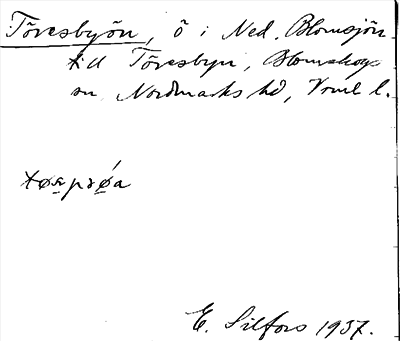 Töresbyön, ö i Ned. Blomsjön
till Töresbyn, Blomskogs
sn Nordmarks hd, Vrml l.
E. Silfors 1937.